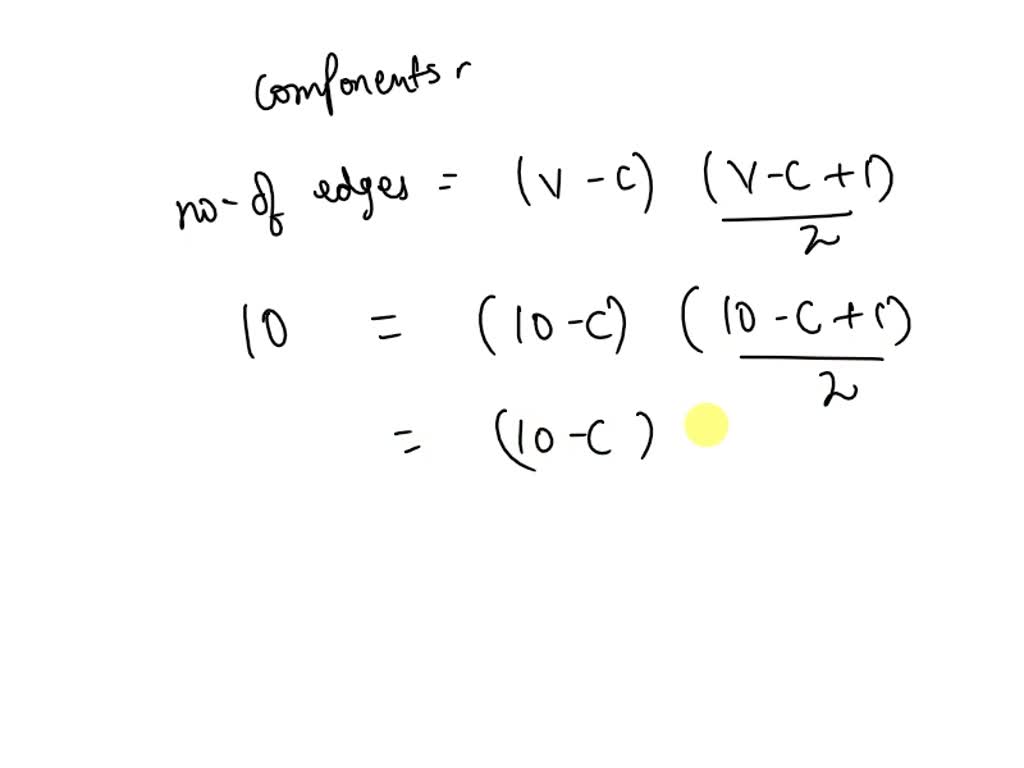 components r
no-of edges = (v-c) (v-c+1)/2
10 = (10-c) (10-c+1)/2
= (10-c)